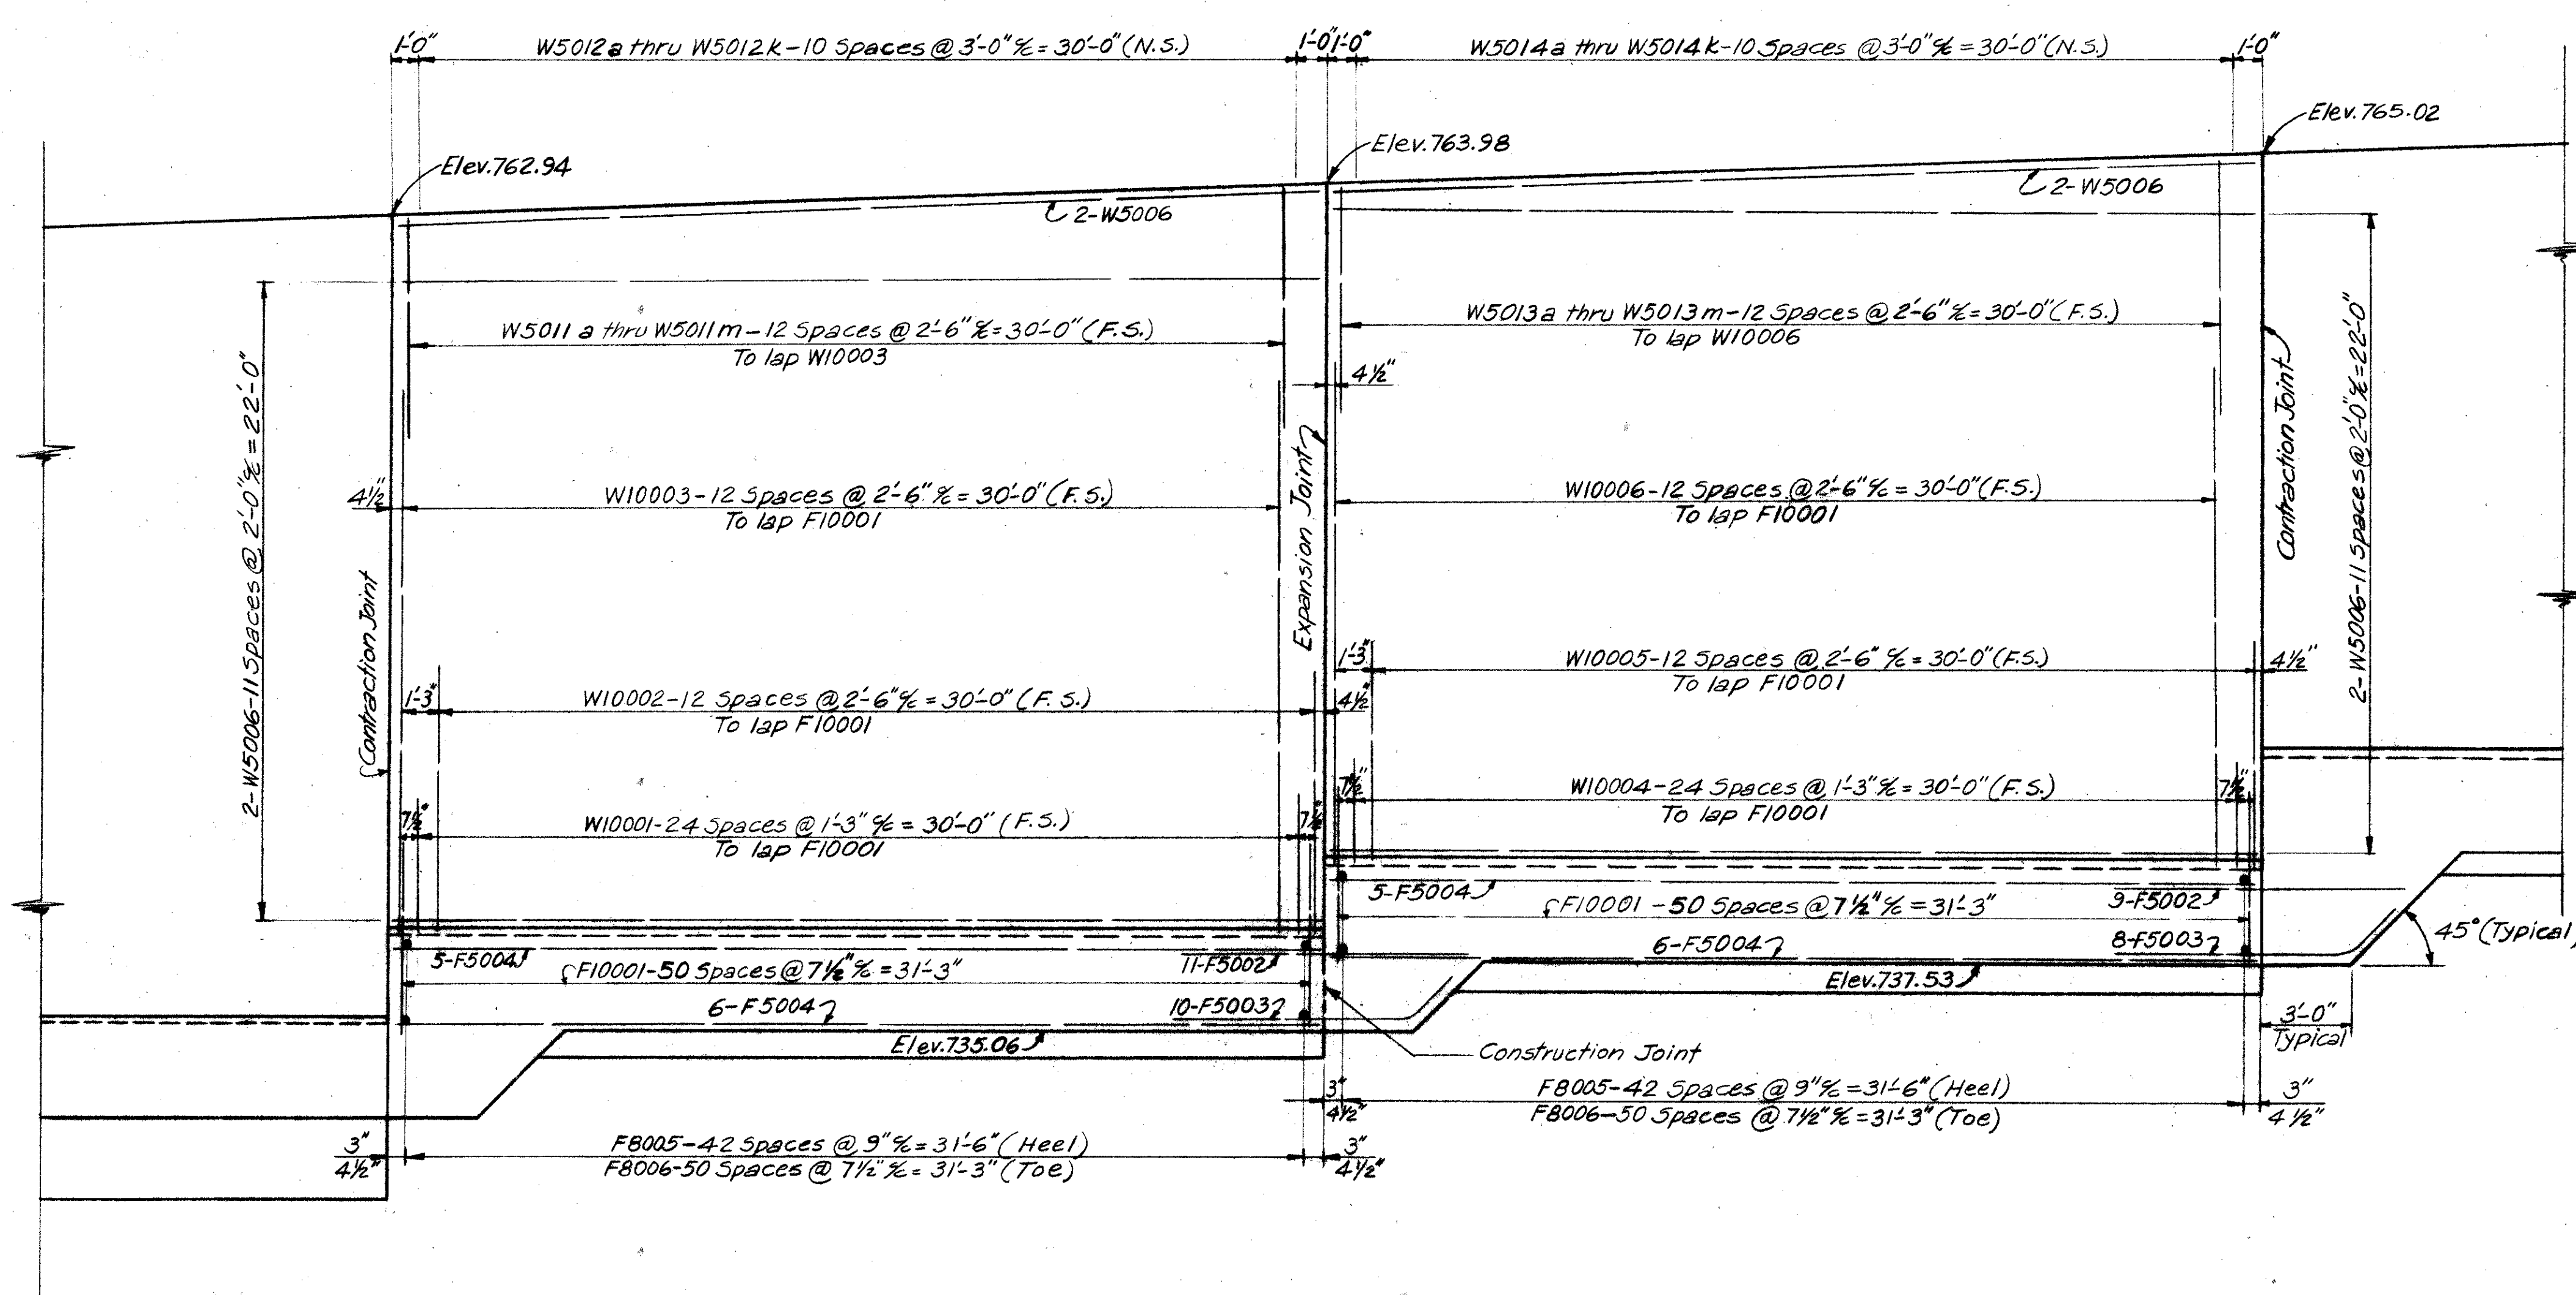 1'-0"
W5012a thru W5012k-10 Spaces @ 3'-0" ℄ = 30'-0" (N.S.)
1'-0"
1'-0"
W5014a thru W5014k-10 Spaces @ 3'-0" ℄ = 30'-0" (N.S.)
1'-0"
Elev. 765.02
Elev. 763.98
Elev. 762.94
2-W5006
2-W5006
W5011a thru W5011m-12 Spaces @ 2'-6" ℄ = 30'-0" (F.S.)
To lap W10003
W5013a thru W5013m-12 Spaces @ 2'-6" ℄ = 30'-0" (F.S.)
To lap W10006
4½"
2-W5006-11 Spaces @ 2'-0" ℄ = 22'-0"
Contraction Joint
Expansion Joint
Contraction Joint
2-W5006-11 Spaces @ 2'-0" ℄ = 22'-0"
4½"
W10003-12 Spaces @ 2'-6" ℄ = 30'-0" (F.S.)
To lap F10001
W10006-12 Spaces @ 2'-6" ℄ = 30'-0" (F.S.)
To lap F10001
1'-3"
W10005-12 Spaces @ 2'-6" ℄ = 30'-0" (F.S.)
To lap F10001
4½"
1'-3"
W10002-12 Spaces @ 2'-6" ℄ = 30'-0" (F.S.)
To lap F10001
4½"
7½"
W10004-24 Spaces @ 1'-3" ℄ = 30'-0" (F.S.)
To lap F10001
7½"
7½"
W10001-24 Spaces @ 1'-3" ℄ = 30'-0" (F.S.)
To lap F10001
7½"
5-F5004
9-F5002
F10001-50 Spaces @ 7½" ℄ = 31'-3"
6-F5004
8-F5003
45° (Typical)
5-F5004
11-F5002
F10001-50 Spaces @ 7½" ℄ = 31'-3"
Elev. 737.53
6-F5004
10-F5003
Elev. 735.06
3'-0"
Typical
Construction Joint
3"
4½"
F8005-42 Spaces @ 9" ℄ = 31'-6" (Heel)
F8006-50 Spaces @ 7½" ℄ = 31'-3" (Toe)
3"
4½"
3"
4½"
F8005-42 Spaces @ 9" ℄ = 31'-6" (Heel)
F8006-50 Spaces @ 7½" ℄ = 31'-3" (Toe)
3"
4½"